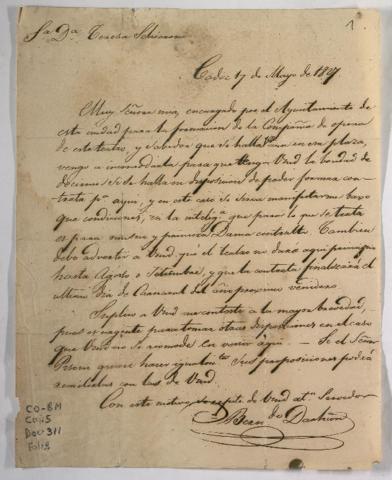 1.
Sa. Da. Teresa
Cadiz 17 de Mayo de 1827.
Muy Señora mia, encargado por el Ayuntamiento de
esta ciudad para la formacion de la Compañia de opera
de este teatro, y sabedor que se halla en esa plaza,
vengo a incomodarla para que tenga Vmd la bondad de
decirme si se halla en disposicion de poder formar con-
trata pa. aqui, y en este caso se sirva manifestarme bajo
que condiciones, en la intelig.a que para lo que se trata
es para musico y primera Dama contralto. Tambien
debo advertir a Vmd que el teatro no dará aqui principio
hasta Agosto o Setiembre, y que la contrata finalizará el
ultimo dia de Carnaval del año proximo venidero.
Suplico a Vmd me conteste a la mayor brevedad,
pues es urgente para tomar otras disposiciones en el caso
que Vmd no se acomode en venir aqui — Si el Señor
quiere hacer igualmte. sus proposiciones podrá
remitirlas con las de Vmd.
Con este motivo se repite de Vmd atto. Servidor
Bern do
CO-BM
Caj:5
Doc: 311
Fol: 9